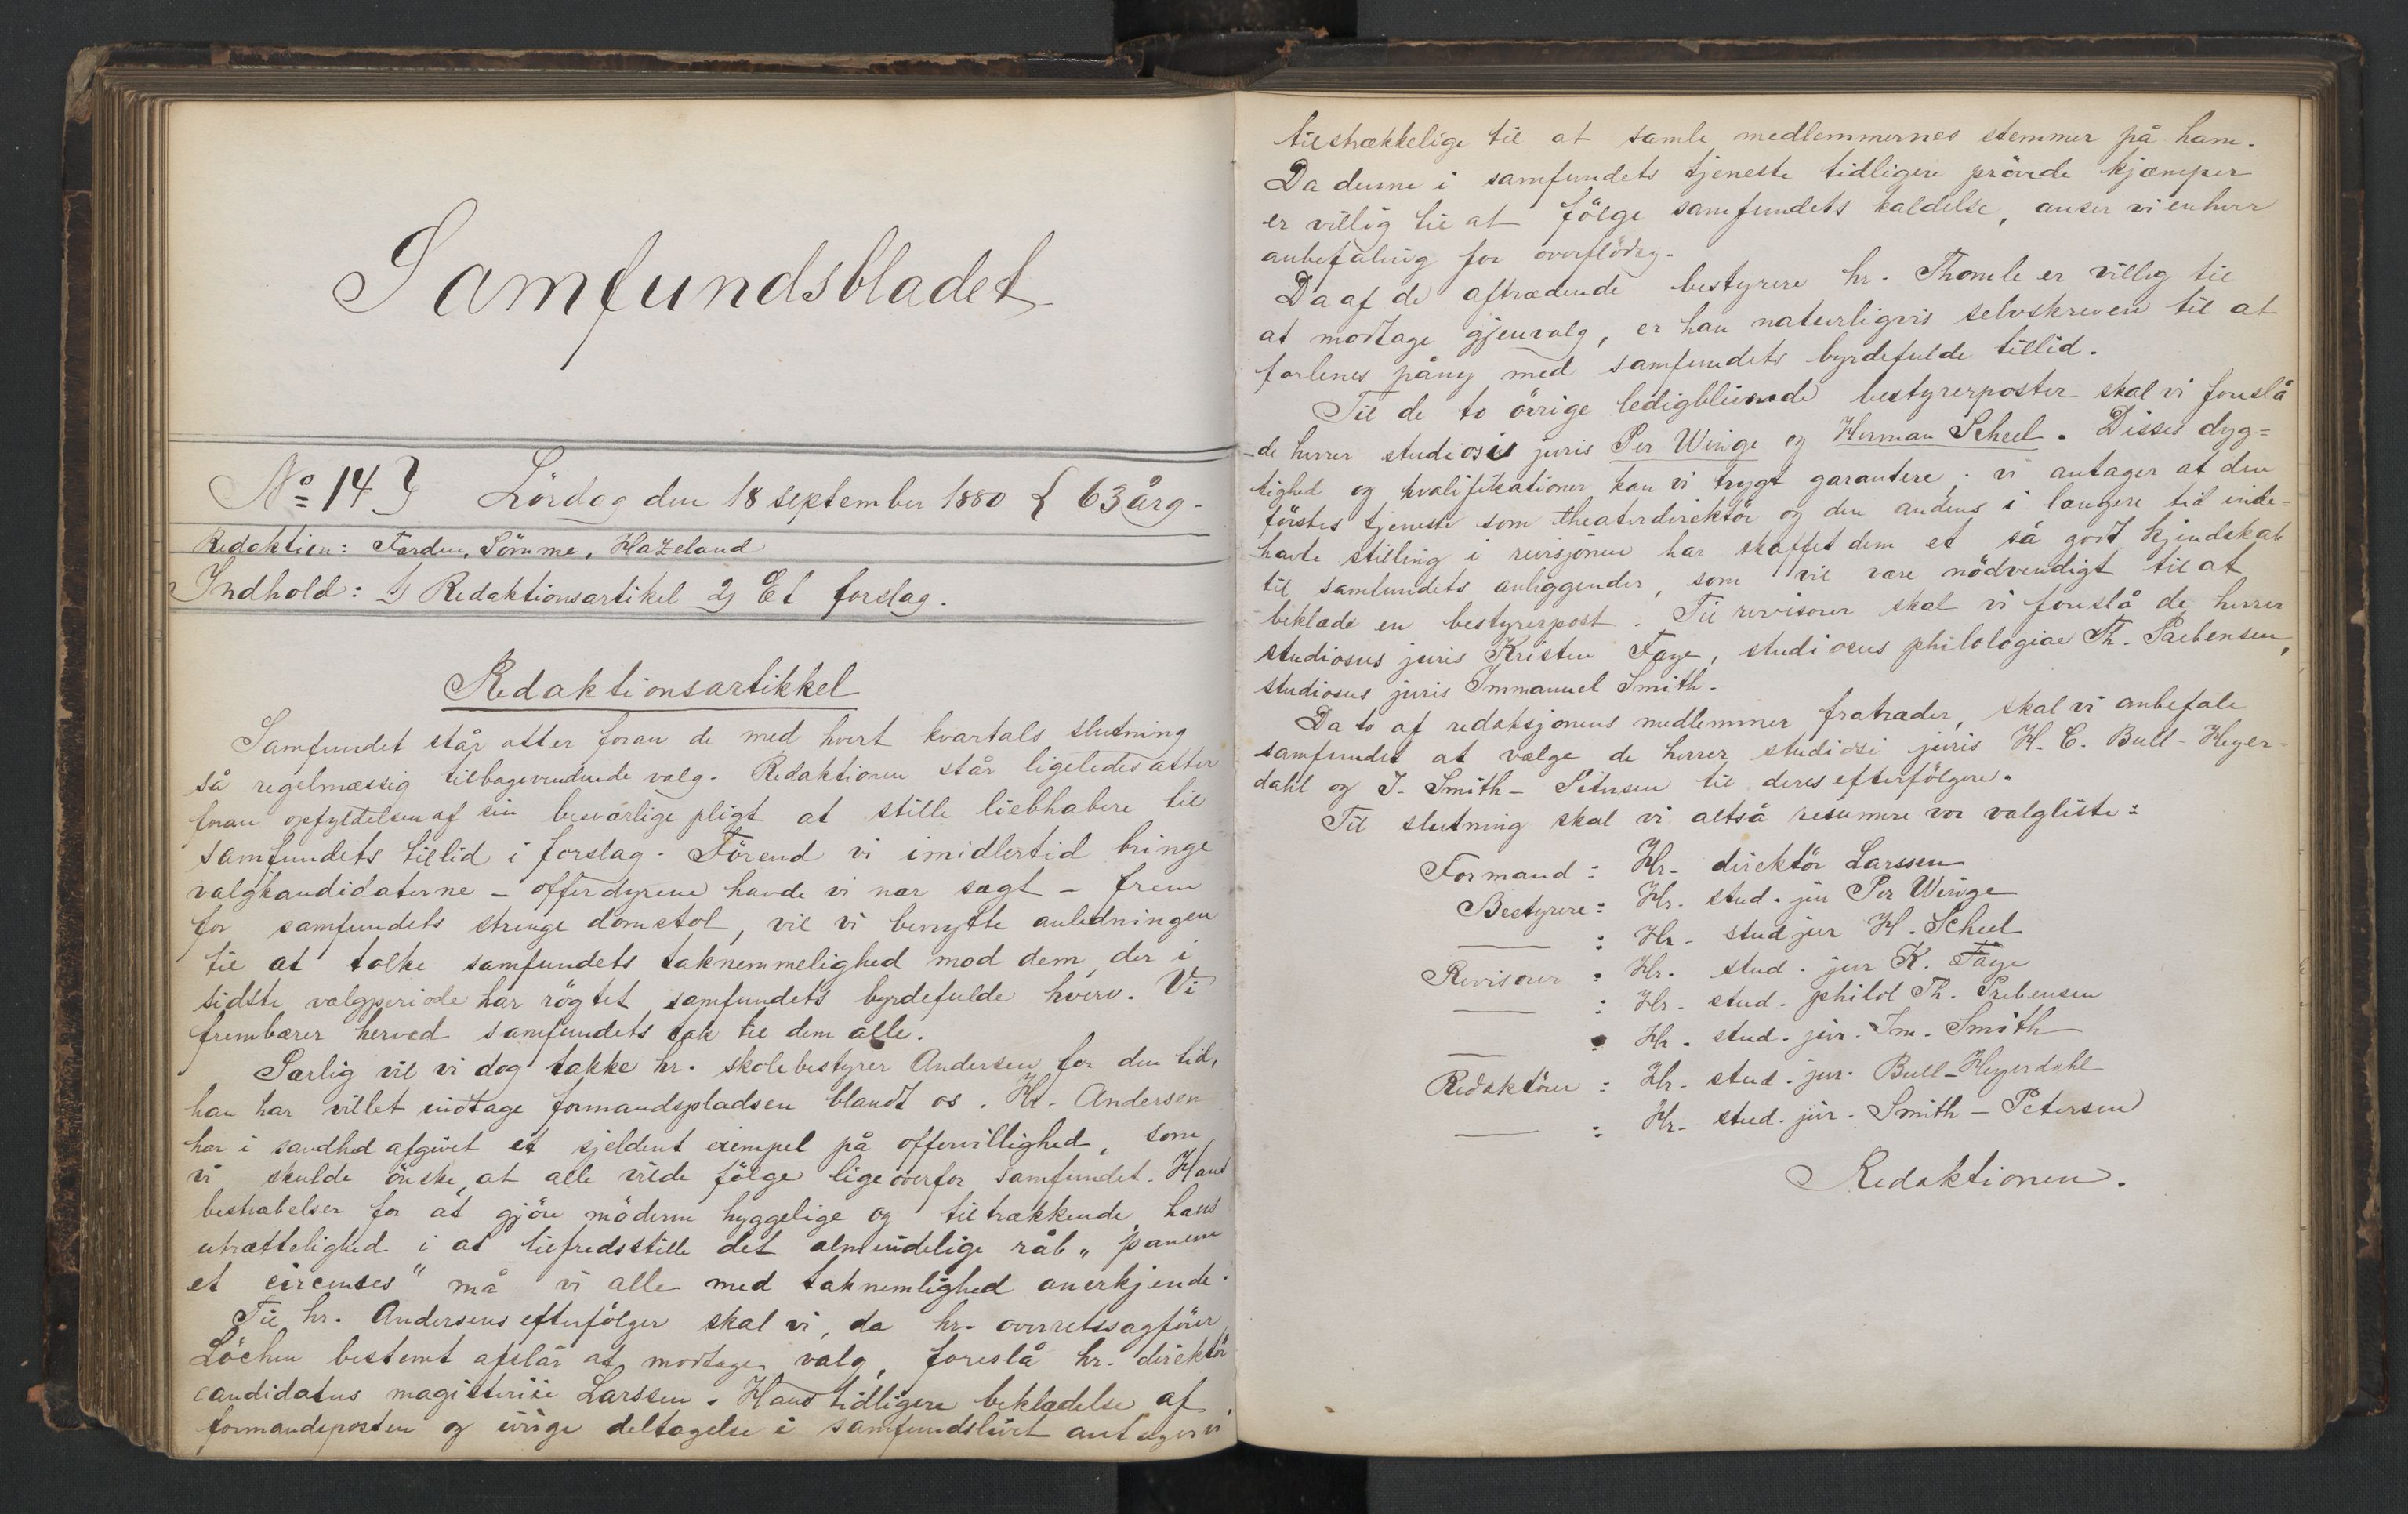 Samfundsbladet
No 14} Lördag den 18 september 1880 { 63 årg.
Redaktion: Farden, Sömme, Hazeland
Indhold: 1) Redaktionsartikel 2) Et forslag.
Redaktionsartikkel
Samfundet står atter foran de med hvert kvartals slutning
så regelmæssig tilbagevendende valg. Redaktionen står ligeledes atter
foran opfyldelsen af sin besværlige pligt at stille liebhabere til
samfundets tillid i forslag. Förend vi imidlertid bringe
valgkandidaterne – offerdyrene havde vi nær sagt – frem
for samfundets strenge domstol, vil vi benytte anledningen
til at tolke samfundets taknemmelighed mod dem, der i
sidste valgperiode har rögtet samfundets byrdefulde hverv. Vi
frembærer herved samfundets tak til dem alle.
Særlig vil vi dog takke hr. skolebestyrer Andersen for den tid,
han har villet indtage formandspladsen blandt os. Hr. Andersen
har i sandhed afgivet et sjeldent exempel på offervillighed, som
vi skulde önske, at alle vilde fölge ligeoverfor samfundet. Hans
bestræbelser for at gjöre möderne hyggelige og tiltrækkende, hans
utrættelighed i at tilfredsstille det almindelige råb „panem
et circenses" må vi alle med taknemlighed anerkjende.
Til hr. Andersens efterfölger skal vi, da hr. overretssagförer
Löchen bestemt afslår at modtage valg, foreslå hr. direktör
candidatus magisterii Larssen. Hans tidligere beklædelse af
formandsposten og ivrige deltagelse i samfundslivet antager vi
tilstrækkelige til at samle medlemmernes stemmer på ham.
Da denne i samfundets tjeneste tidligere prövede kjæmper
er villig til at fölge samfundets kaldelse, anser vi enhver
anbefaling for overflödig.
Da af de aftrædende bestyrere hr. Thomle er villig til
at modtage gjenvalg, er han naturligvis selvskreven til at
forlenes påny med samfundets byrdefulde tillid.
Til de to övrige ledigblivende bestyrerposter skal vi foreslå
de herrer studiosis juris Per Winge og Herman Scheel. Disses dyg=
tighed og kvalifikationer kan vi trygt garantere; vi antager at den
förstes tjeneste som theaterdirektör og den andens i længere tid inde=
havte stilling i revisjonen har skaffet dem et så godt kjendskab
til samfundets anliggender, som vil være nödvendigt til at
beklæde en bestyrerpost. Til revisorer skal vi foreslå de herrer
studiosus juris Kristen Faye, studiosus philologiae Th. Prebensen,
studiosus juris Immanuel Smith.
Da to af redaksjonens medlemmer fratræder, skal vi anbefale
samfundet at vælge de herrer studiosi juris H. C. Bull-Heyer-
dahl og J. Smith-Petersen til deres efterfölgere.
Til slutning skal vi altså resumere vor valgliste:
Formand: Hr. direktör Larssen
Bestyrere: Hr. stud. jur Per Winge
— : Hr. stud jur H. Scheel
Revisorer : Hr. stud. jur K. Faye
— : Hr. stud. philol Th. Prebensen
— : Hr. stud. jur. Im. Smith
Redaktörer : Hr. stud. jur. Bull-Heyerdahl
— : Hr. stud. jur. Smith-Petersen
Redaktionen.